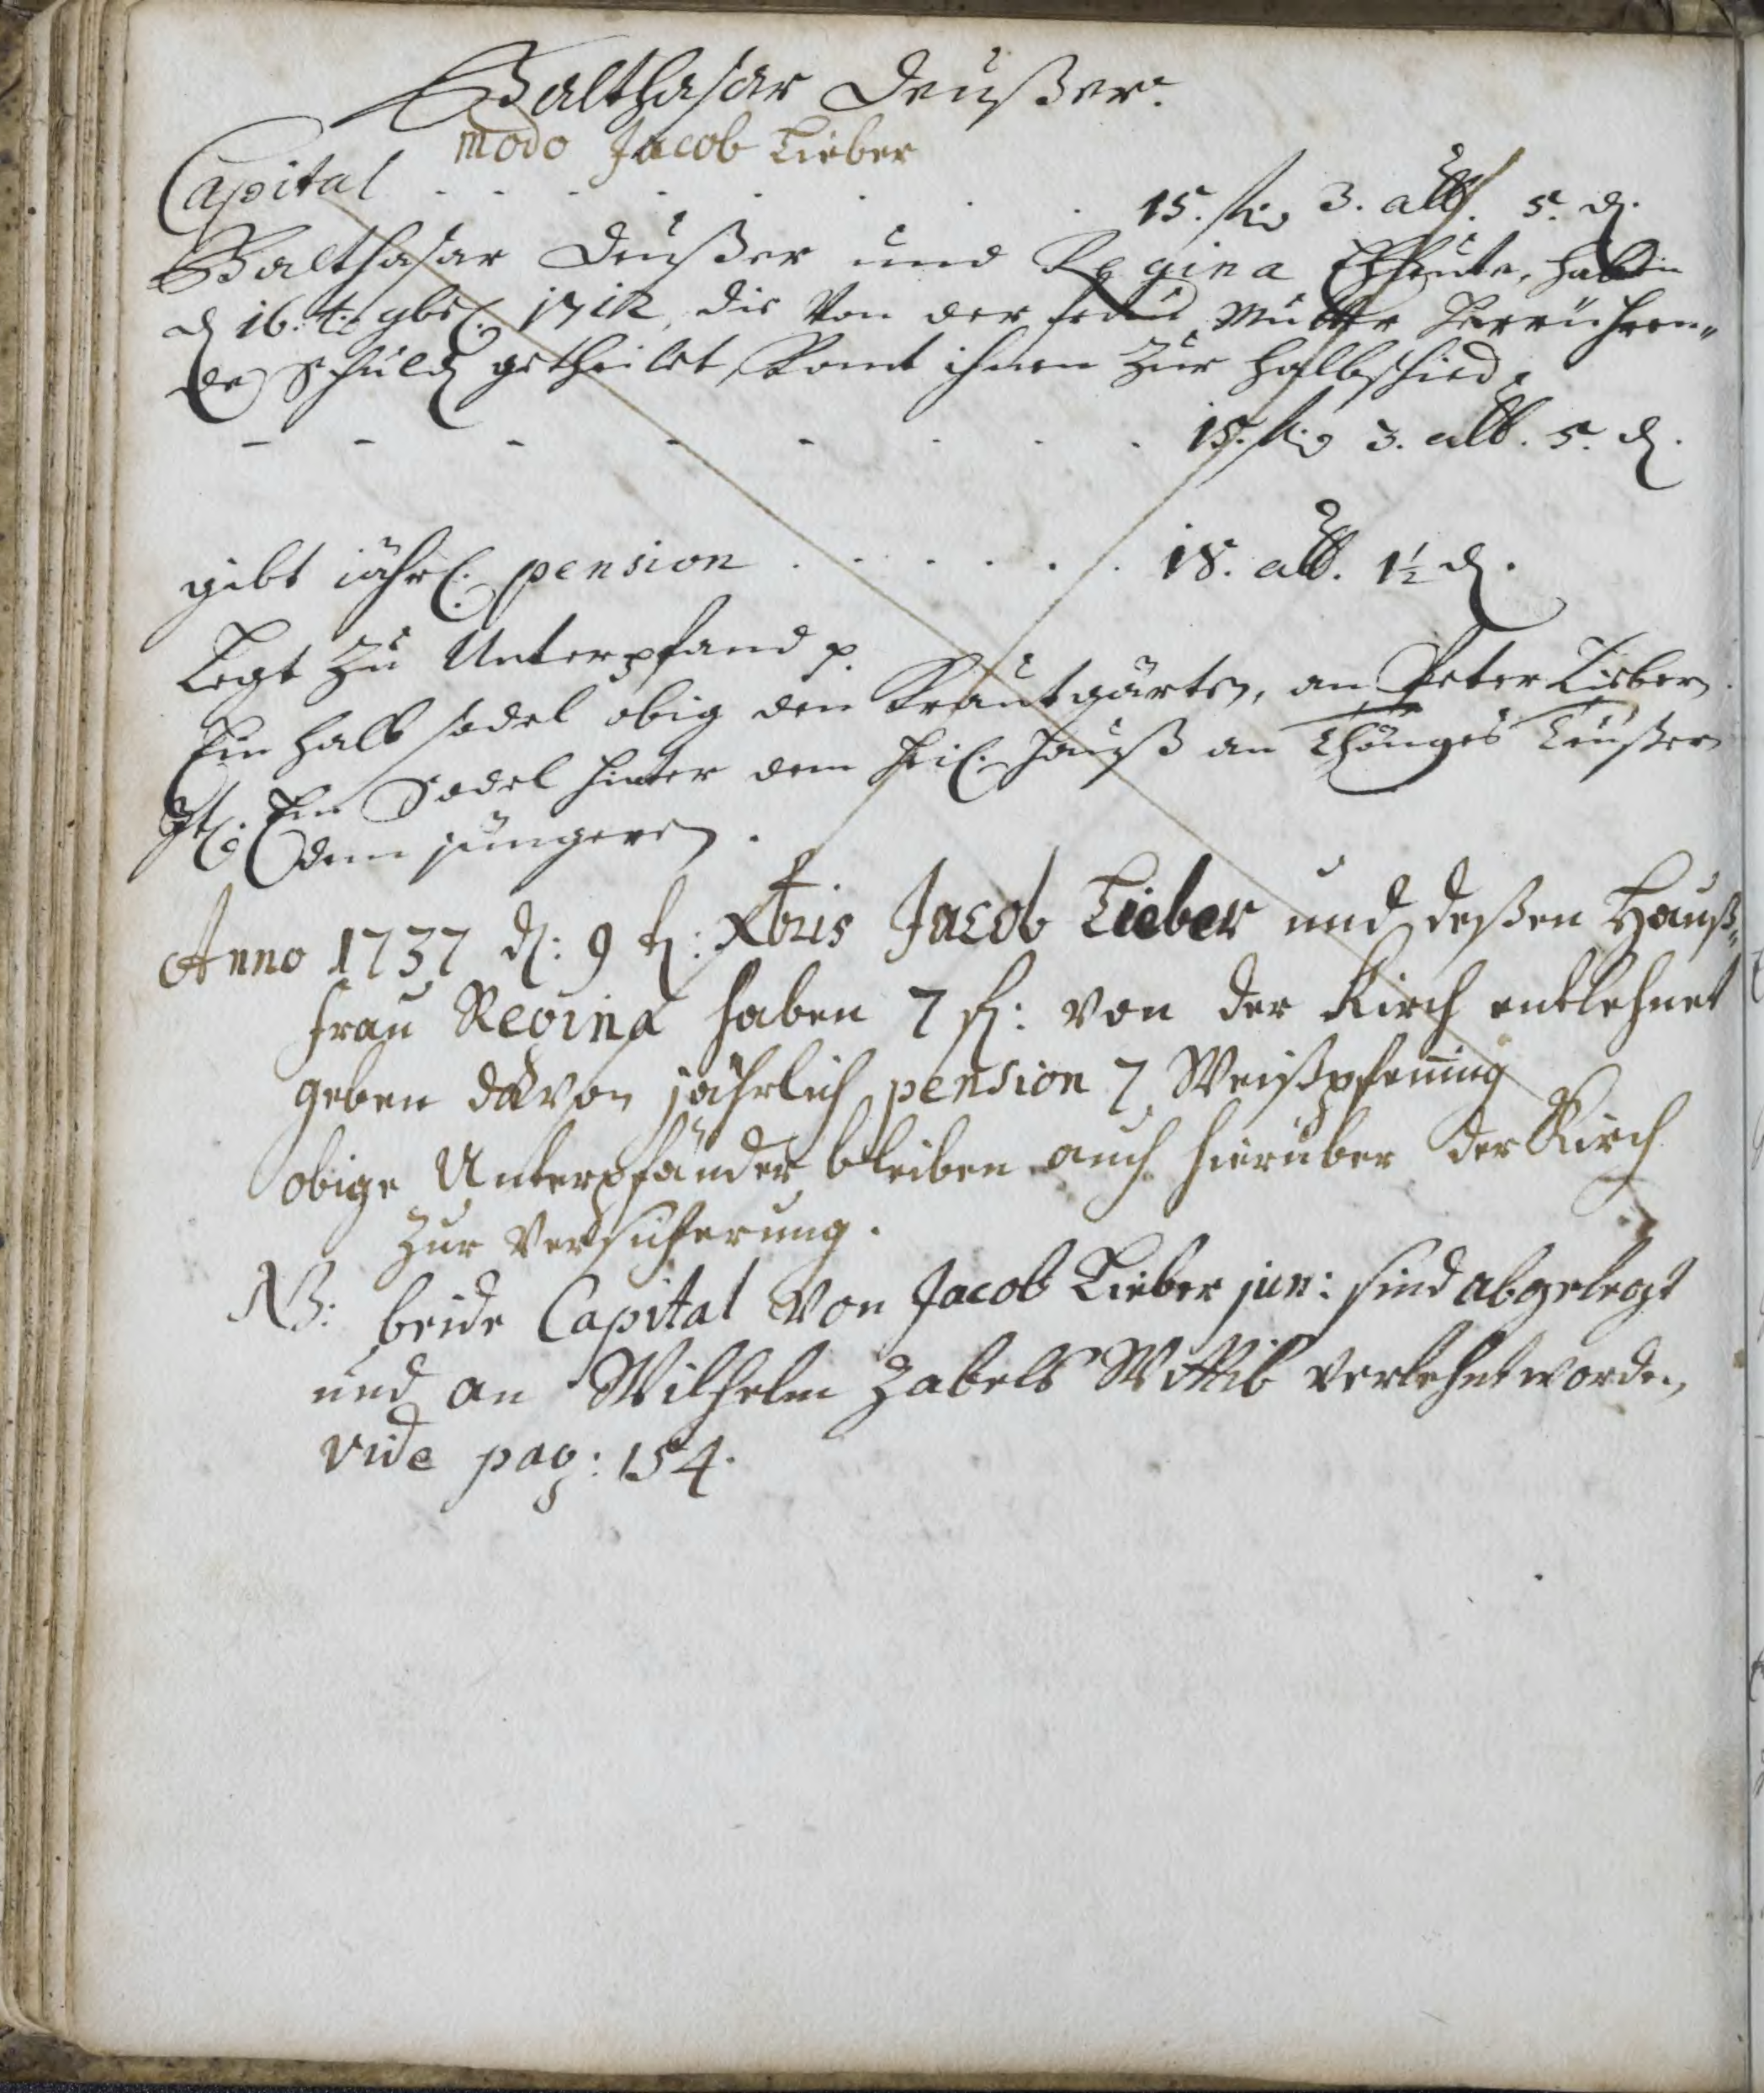 Balthasar Deußer.
modo Jacob Lieber
Capital . . . . . . . 15. fl. 3. alb. 5. d.
Balthasar Deußer und Regina Eheleute, haben
d 16.t. 9br. 1712, die von der Mutter herrühren„
de Schuld getheilet, komt ihnen zur halbschied
- - - - - . . . 15. fl. 3. alb. 5. d.
gibt iährl. pension . . . . . . 18. alb. 1½ d.
Legt zu Unterpfand p.
Ein halb sodel obig den Krautgärten, an Peter Liebern.
It. Ein Sodel hinter dem heil. hauß an Thönges Teußer
dem jüngeren.
Anno 1737 d: 9 t: Xbris Jacob Lieber und deßen Hauß„
frau Regina haben 7 fl: von der Kirch entlehnet
geben davon jährlich pension 7 Weißpfening
obige Unterpfänder bleiben auch hierüber der Kirch
zur versicherung.
NB: beide Capital von Jacob Lieber jun: sind abgelegt
und an Wilhelm Zabels Wittib verlehnt worden,
vide pag: 154.